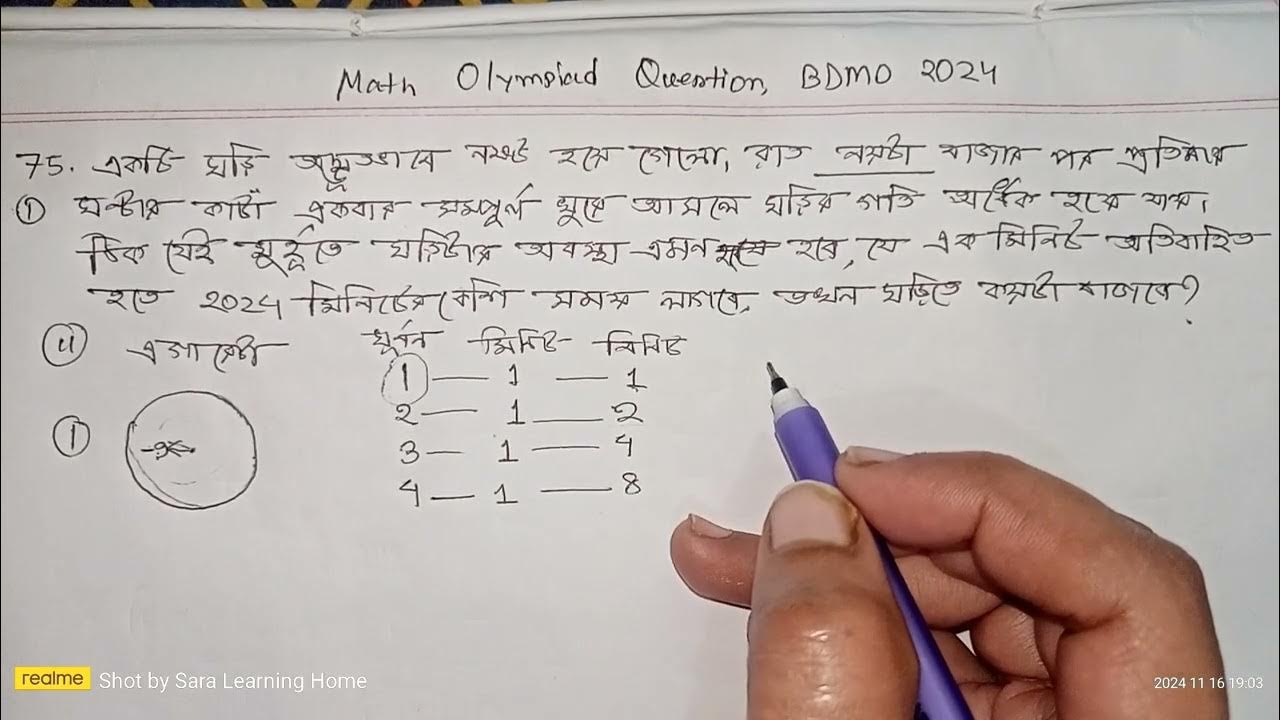 Math Olympiad Question, BDMO 2024
75. একটি ঘড়ি অদ্ভূতভাবে নষ্ট হয়ে গেলো, রাত নয়টা বাজার পর প্রতিবার
① ঘণ্টার কাটাঁ একবার সম্পূর্ণ ঘুরে আসলে ঘড়ির গতি অর্ধেক হয়ে যায়।
ঠিক যেই মুহূর্তে ঘড়িটার অবস্থা এমন হবে, যে এক মিনিট অতিবাহিত
হতে ২০24 মিনিটের বেশি সময় লাগবে, তখন ঘড়িতে কয়টা বাজবে?
ঘূর্ণন মিনিট মিনিট
① 1 — 1 — 1
2 — 1 — 2
3 — 1 — 4
4 — 1 — 8
realme Shot by Sara Learning Home
2024 11 16 19:03